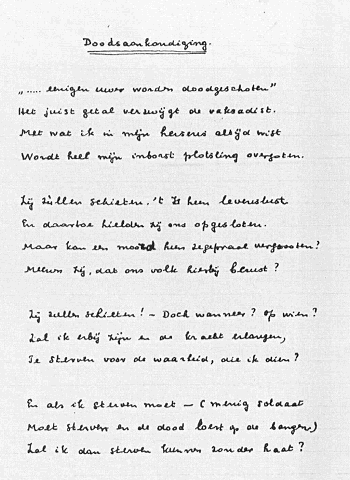 Doodsaankondiging.
"..... enigen uwer worden doodgeschoten"
Het juist getal verzwijgt de vaksadist.
Met wat ik in mijn hersens altijd wist
Wordt heel mijn inborst plotsling overgoten.
Zij zullen schieten. 't Is hun levenslust
En daartoe hielden zij ons opgesloten.
Maar kan een moord hun zegepraal vergrooten?
Meenen zij, dat ons volk hierbij berust?
Zij zullen schieten! - Doch wanneer? Op wien?
Zal ik erbij zijn en de kracht erlangen,
Te sterven voor de waarheid, die ik dien?
En als ik sterven moet - (menig soldaat
Moet sterven en de dood loert op de bangen)
Zal ik dan sterven kunnen zonder haat?